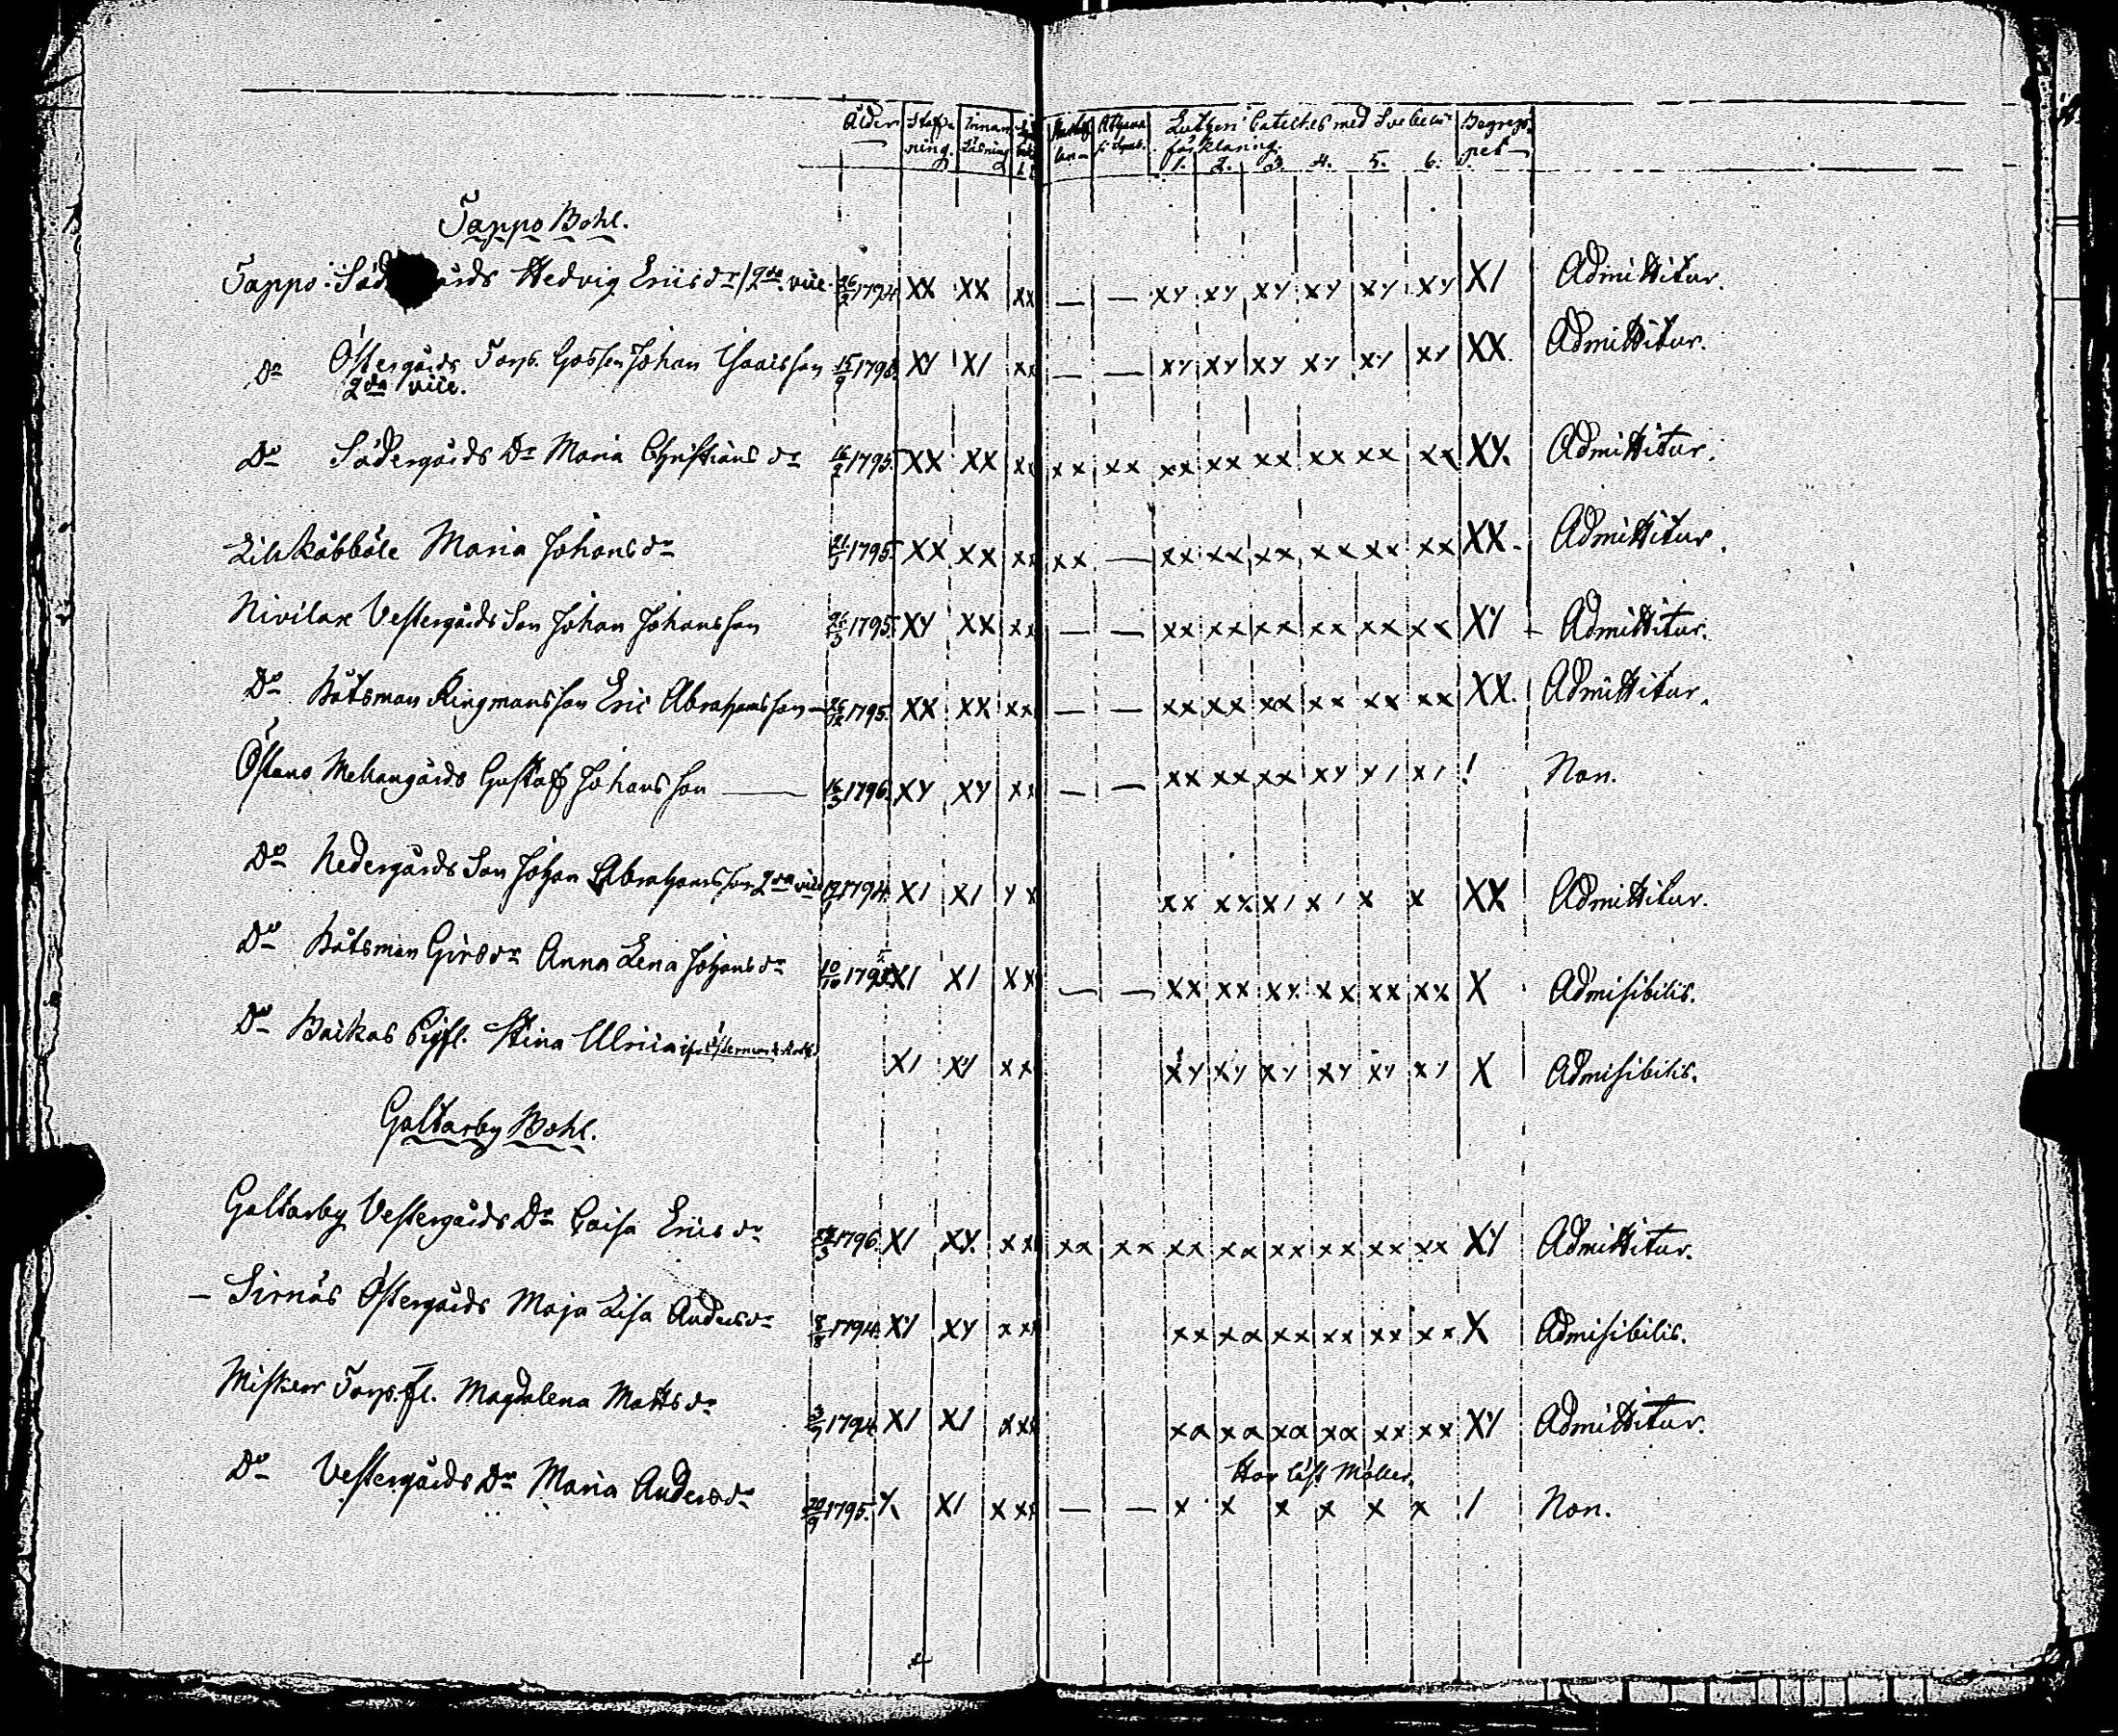 Ålder Stafning. Innanläsning Lutheri Cateches med Svebelii förklaring. Begreppet
1. 2. 3. 4. 5. 6.
Tappo Bohl.
Tappo Hedvig Ericsdr 2da vice 1794 XX XX xx — — xy xy xy xy xy xy X/ Admittitur.
Do Östergårds Torp. Gossen Johan Isacsson 15/9 179 XY X/ xx — — xy xy xy xy xy xy XX. Admittitur.
2da vice.
Do Södergårds Dr Maria Christiansdr 16/2 1795 XX XX xx xx xx xx xx xx xx xx xx XX. Admittitur.
Lillkåbböle Maria Johansdr 1795 XX XX xx xx — xx xx xx xx xx xx XX. Admittitur.
Nivilax Vestergårds Son Johan Johansson 1795 XY XX xx — — xx xx xx xx xx xx XY Admittitur.
Do Båtsman Ringmansson Eric Abrahamsson — 1795. XX XX xx — — xx xx xx xx xx xx XX. Admittitur.
Östanå Mellangårds Gustaf Johansson — 16/3 1796. XY XY xx — — xx xx xx xy x/ x/ / Non.
Do Nedergårds Son Johan Abrahamsson 2da vice 1794. X/ X/ xx xx xx x/ x/ x x XX Admittitur.
Do Båtsman Girsdr Anna Lena Johansdr 10/10 1795 X/ X/ xx — — xx xx xx xx xx xx X Admisibilis.
Do Backas Pigfl. Stina Ulrica X/ XY xx xy xy xy xy xy xy X Admisibilis.
Galtarby Bohl.
Galtarby Vestergårds Dr Caisa Ericsdr 1796. X/ XX. xx xx xx xx xx xx xx xx xx XY Admittitur.
— Sirnäs Östergårds Maja Lisa Andersdr 1794. XY XY xx xx xx xx xx xx xx X Admisibilis.
Misker Torp. fl. Magdalena Mattsdr 1794. X/ X/ xx xx xx xx xx xx xx XY Admittitur.
Har läst Möller.
Do Vestergårds Dr Maria Andersdr 20/9 1795. X X/ xxx — — x x x x x x / Non.